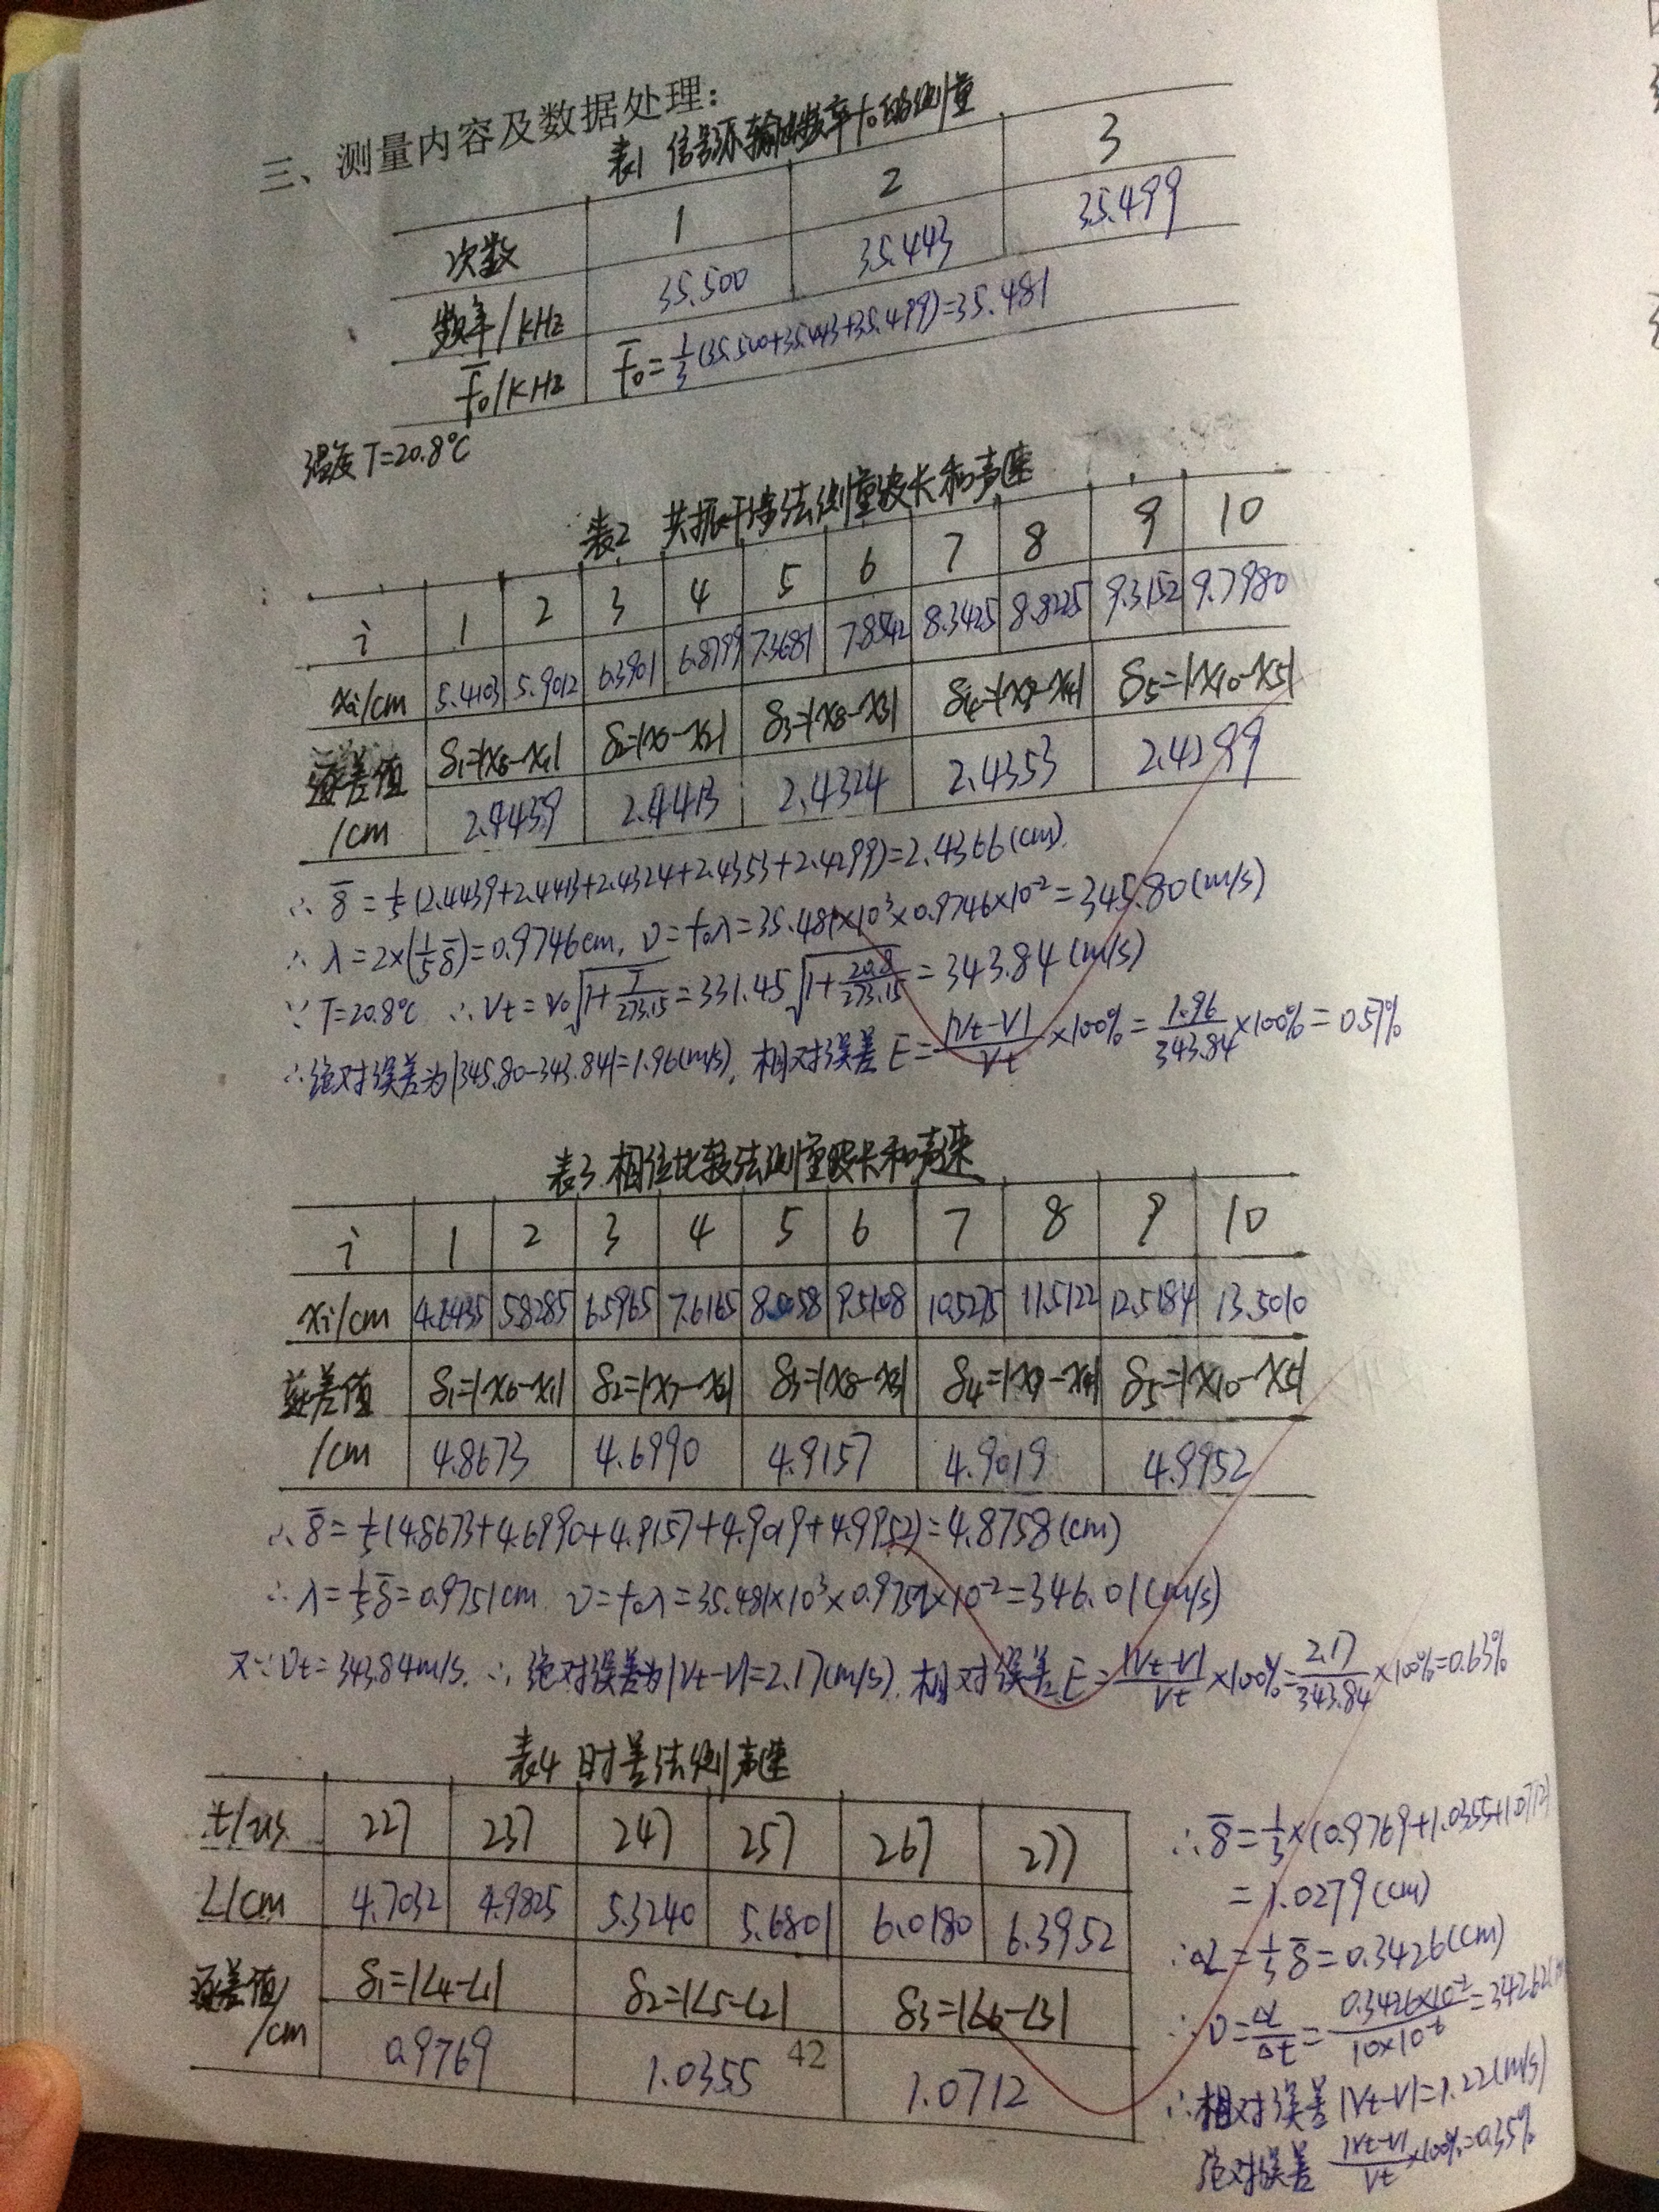 三、测量内容及数据处理：
表1 信号源输出频率f₀的测量
次数 1 2 3
频率/KHz 35.500 35.443 35.499
f̄₀/KHz f̄₀=1/3(35.500+35.443+35.499)=35.481
温度T=20.8℃
表2 共振干涉法测量波长和声速
i 1 2 3 4 5 6 7 8 9 10
xi/cm 5.4103 5.9012 6.3901 6.8799 7.3681 7.8542 8.3425 8.8225 9.3152 9.7980
逐差值 δ₁=|x₆-x₁| δ₂=|x₇-x₂| δ₃=|x₈-x₃| δ₄=|x₉-x₄| δ₅=|x₁₀-x₅|
/cm 2.4439 2.4413 2.4324 2.4353 2.4299
∴ δ̄=1/5(2.4439+2.4413+2.4324+2.4353+2.4299)=2.4366(cm).
∴ λ=2×(1/5δ̄)=0.9746cm, υ=f₀λ=35.481×10³×0.9746×10⁻²=345.80(m/s)
∵ T=20.8℃ ∴ Vt=v₀√(1+T/273.15)=331.45√(1+20.8/273.15)=343.84(m/s)
∴绝对误差为|345.80-343.84|=1.96(m/s), 相对误差E=|Vt-V|/Vt×100%=1.96/343.84×100%=0.57%
表3 相位比较法测量波长和声速
i 1 2 3 4 5 6 7 8 9 10
xi/cm 4.6435 5.8285 6.5965 7.6165 8.5058 9.5108 10.5275 11.5122 12.5184 13.5010
逐差值 δ₁=|x₆-x₁| δ₂=|x₇-x₂| δ₃=|x₈-x₃| δ₄=|x₉-x₄| δ₅=|x₁₀-x₅|
/cm 4.8673 4.6990 4.9157 4.9019 4.9952
∴ δ̄=1/5(4.8673+4.6990+4.9157+4.9019+4.9952)=4.8758(cm)
∴ λ=1/5δ̄=0.9751cm. υ=f₀λ=35.481×10³×0.9752×10⁻²=346.01(m/s)
又∵υt=343.84m/s. ∴ 绝对误差为|Vt-V|=2.17(m/s). 相对误差E=|Vt-V|/Vt×100%=2.17/343.84×100%=0.63%
表4 时差法测声速
t/us 227 237 247 257 267 277
L/cm 4.7032 4.9825 5.3240 5.6801 6.0180 6.3952
逐差值/cm δ₁=|L₄-L₁| δ₂=|L₅-L₂| δ₃=|L₆-L₃|
0.9769 1.0355 1.0712
∴ δ̄=1/3×(0.9769+1.0355+1.0712)
=1.0279(cm)
∴ΔL=1/3δ̄=0.3426(cm)
∴υ=ΔL/Δt=0.3426×10⁻²/10×10⁻⁶=342.62
∴相对误差|Vt-V|=1.22(m/s)
绝对误差 |Vt-V|/Vt×100%=0.35%
42